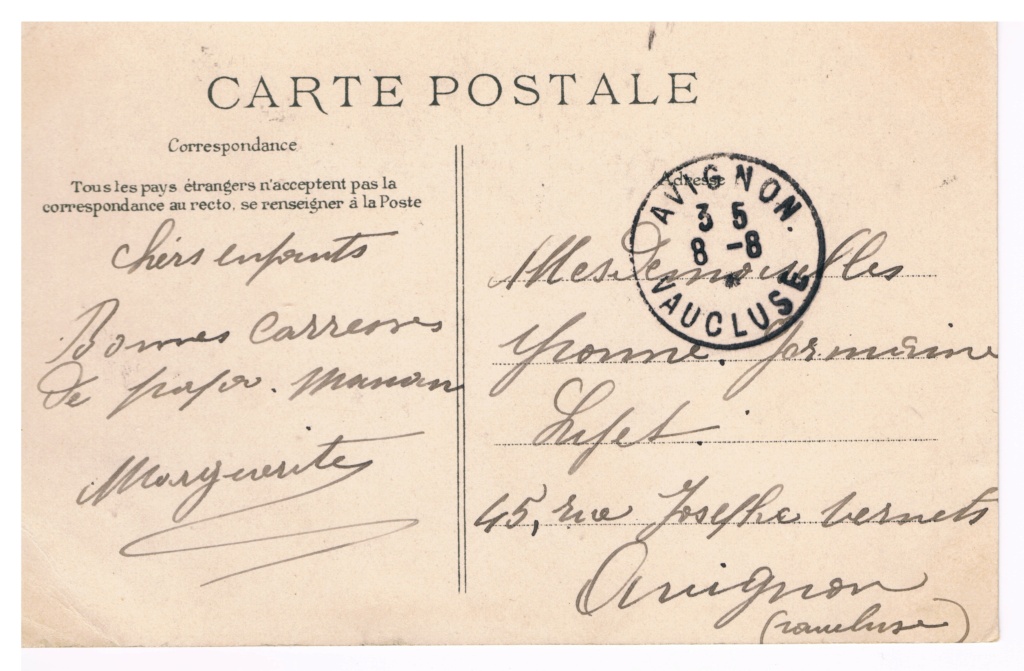 CARTE POSTALE
Correspondance
Tous les pays étrangers n'acceptent pas la
correspondance au recto, se renseigner à la Poste
chers enfants
Bonnes Carresses
de papa. Maman
Marguerite
Adresse
AVIGNON.
3 5
8 -8
*
VAUCLUSE
MesDemoiselles
Yvonne. Germaine
45, rue Josephe Vernets
Avignon
(vaucluse)